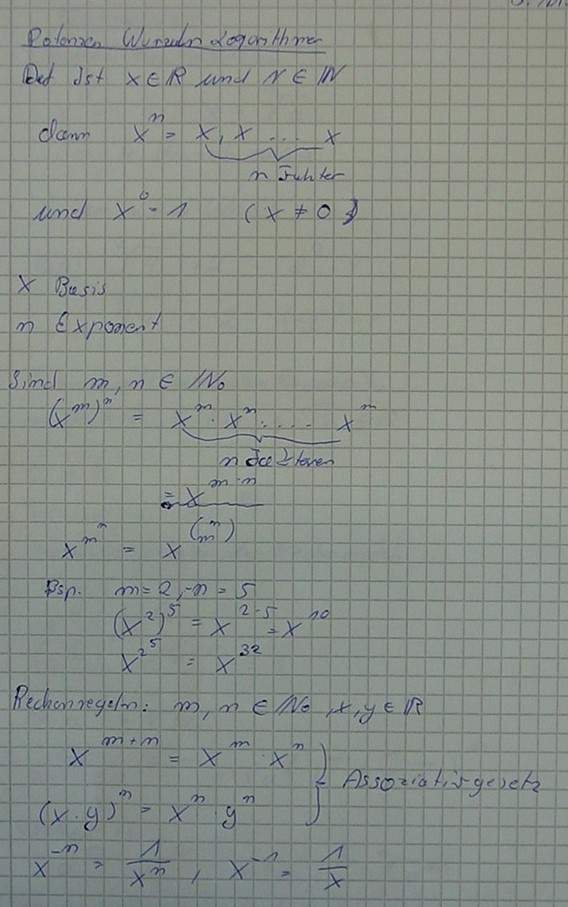 Potenzen Wurzeln Logarithmen
Def Ist x ∈ R und N ∈ ℕ
dann xⁿ = x, x ... x
n
und x⁰ = 1 (x ≠ 0)
x Basis
n Exponent
Sind m, n ∈ ℕ₀
(xᵐ)ⁿ = xᵐ · xⁿ · .... xᵐ
n Faktoren
= x^(m·n)
x^m^n = x^(mⁿ)
Bsp. m = 2, n = 5
(x²)⁵ = x^(2·5) = x¹⁰
x^2^5 = x³²
Rechenregeln: m, n ∈ ℕ₀, x, y ∈ ℝ
x^(m+n) = xᵐ · xⁿ
Assoziativgesetz
(x · y)ⁿ = xⁿ · yⁿ
x⁻ⁿ = 1/xⁿ , x⁻¹ = 1/x